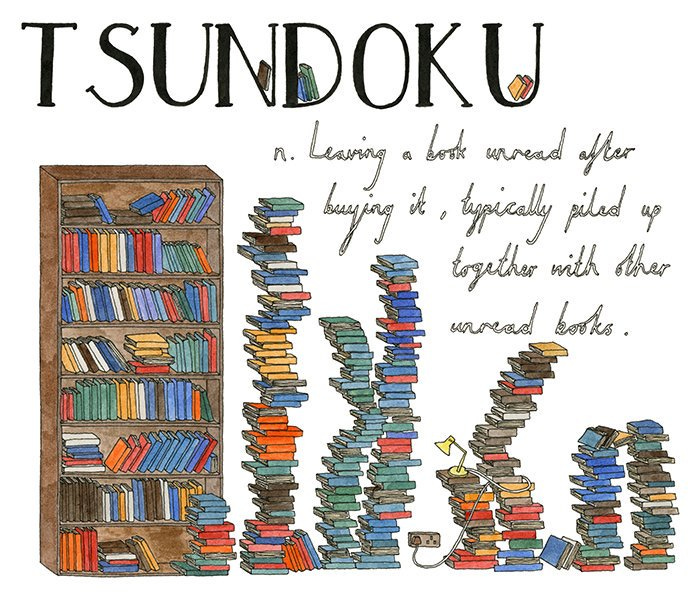 TSUNDOKU
n. Leaving a book unread after
buying it, typically piled up
together with other
unread books.